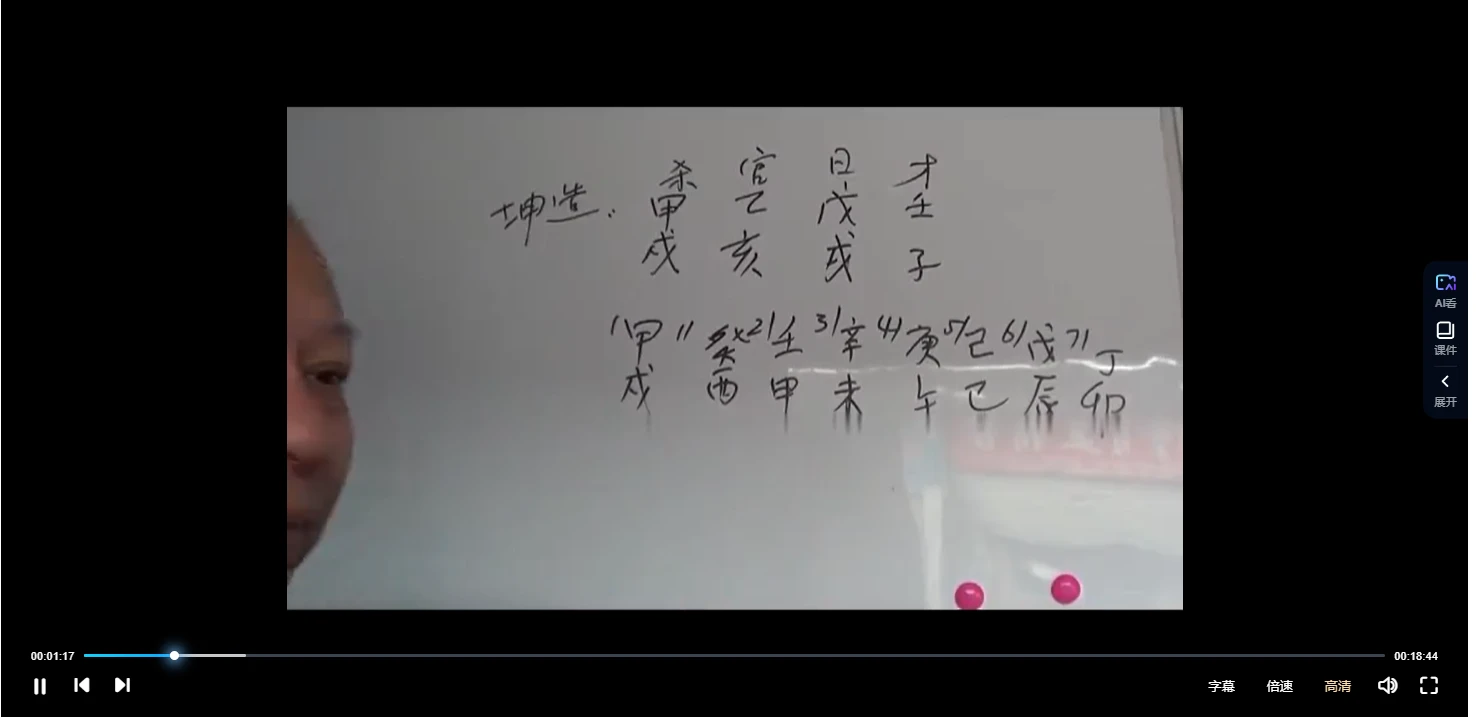 杀 官 日 才
坤造: 甲 乙 戊 壬
戌 亥 戌 子
1/甲 11/癸 21/壬 31/辛 41/庚 51/己 61/戊 71/丁
戌 酉 申 未 午 巳 辰 卯
AI看
课件
展开
00:01:17
00:18:44
字幕 倍速 高清